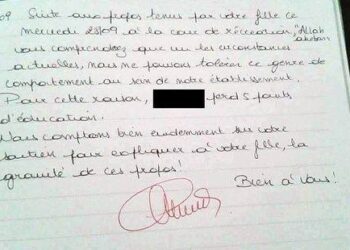 09 Suite aux propos tenus par votre fille ce
mercredi 23/09 à la cour de récréation, "Allah
akubar"
vous comprendrez que vu les circonstances
actuelles, nous ne pouvons tolérer ce genre de
comportement au sein de notre établissement.
Pour cette raison, perd 5 points
d'éducation.
Nous comptons bien évidemment sur votre
soutien pour expliquer à votre fille, la
gravité de ces propos!
Bien à vous!